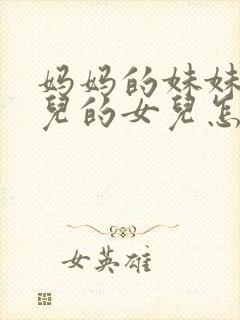 妈妈的妹妹
兒的女兒怎
女英雄